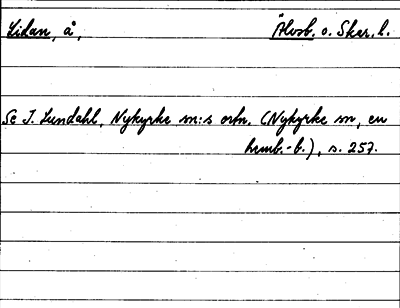 Lidan, å, Älvsb. o. Skar. l.
Se I. Lundahl, Nykyrke m:s ortn. (Nykyrke m, en
hemb.-b.), s. 257.